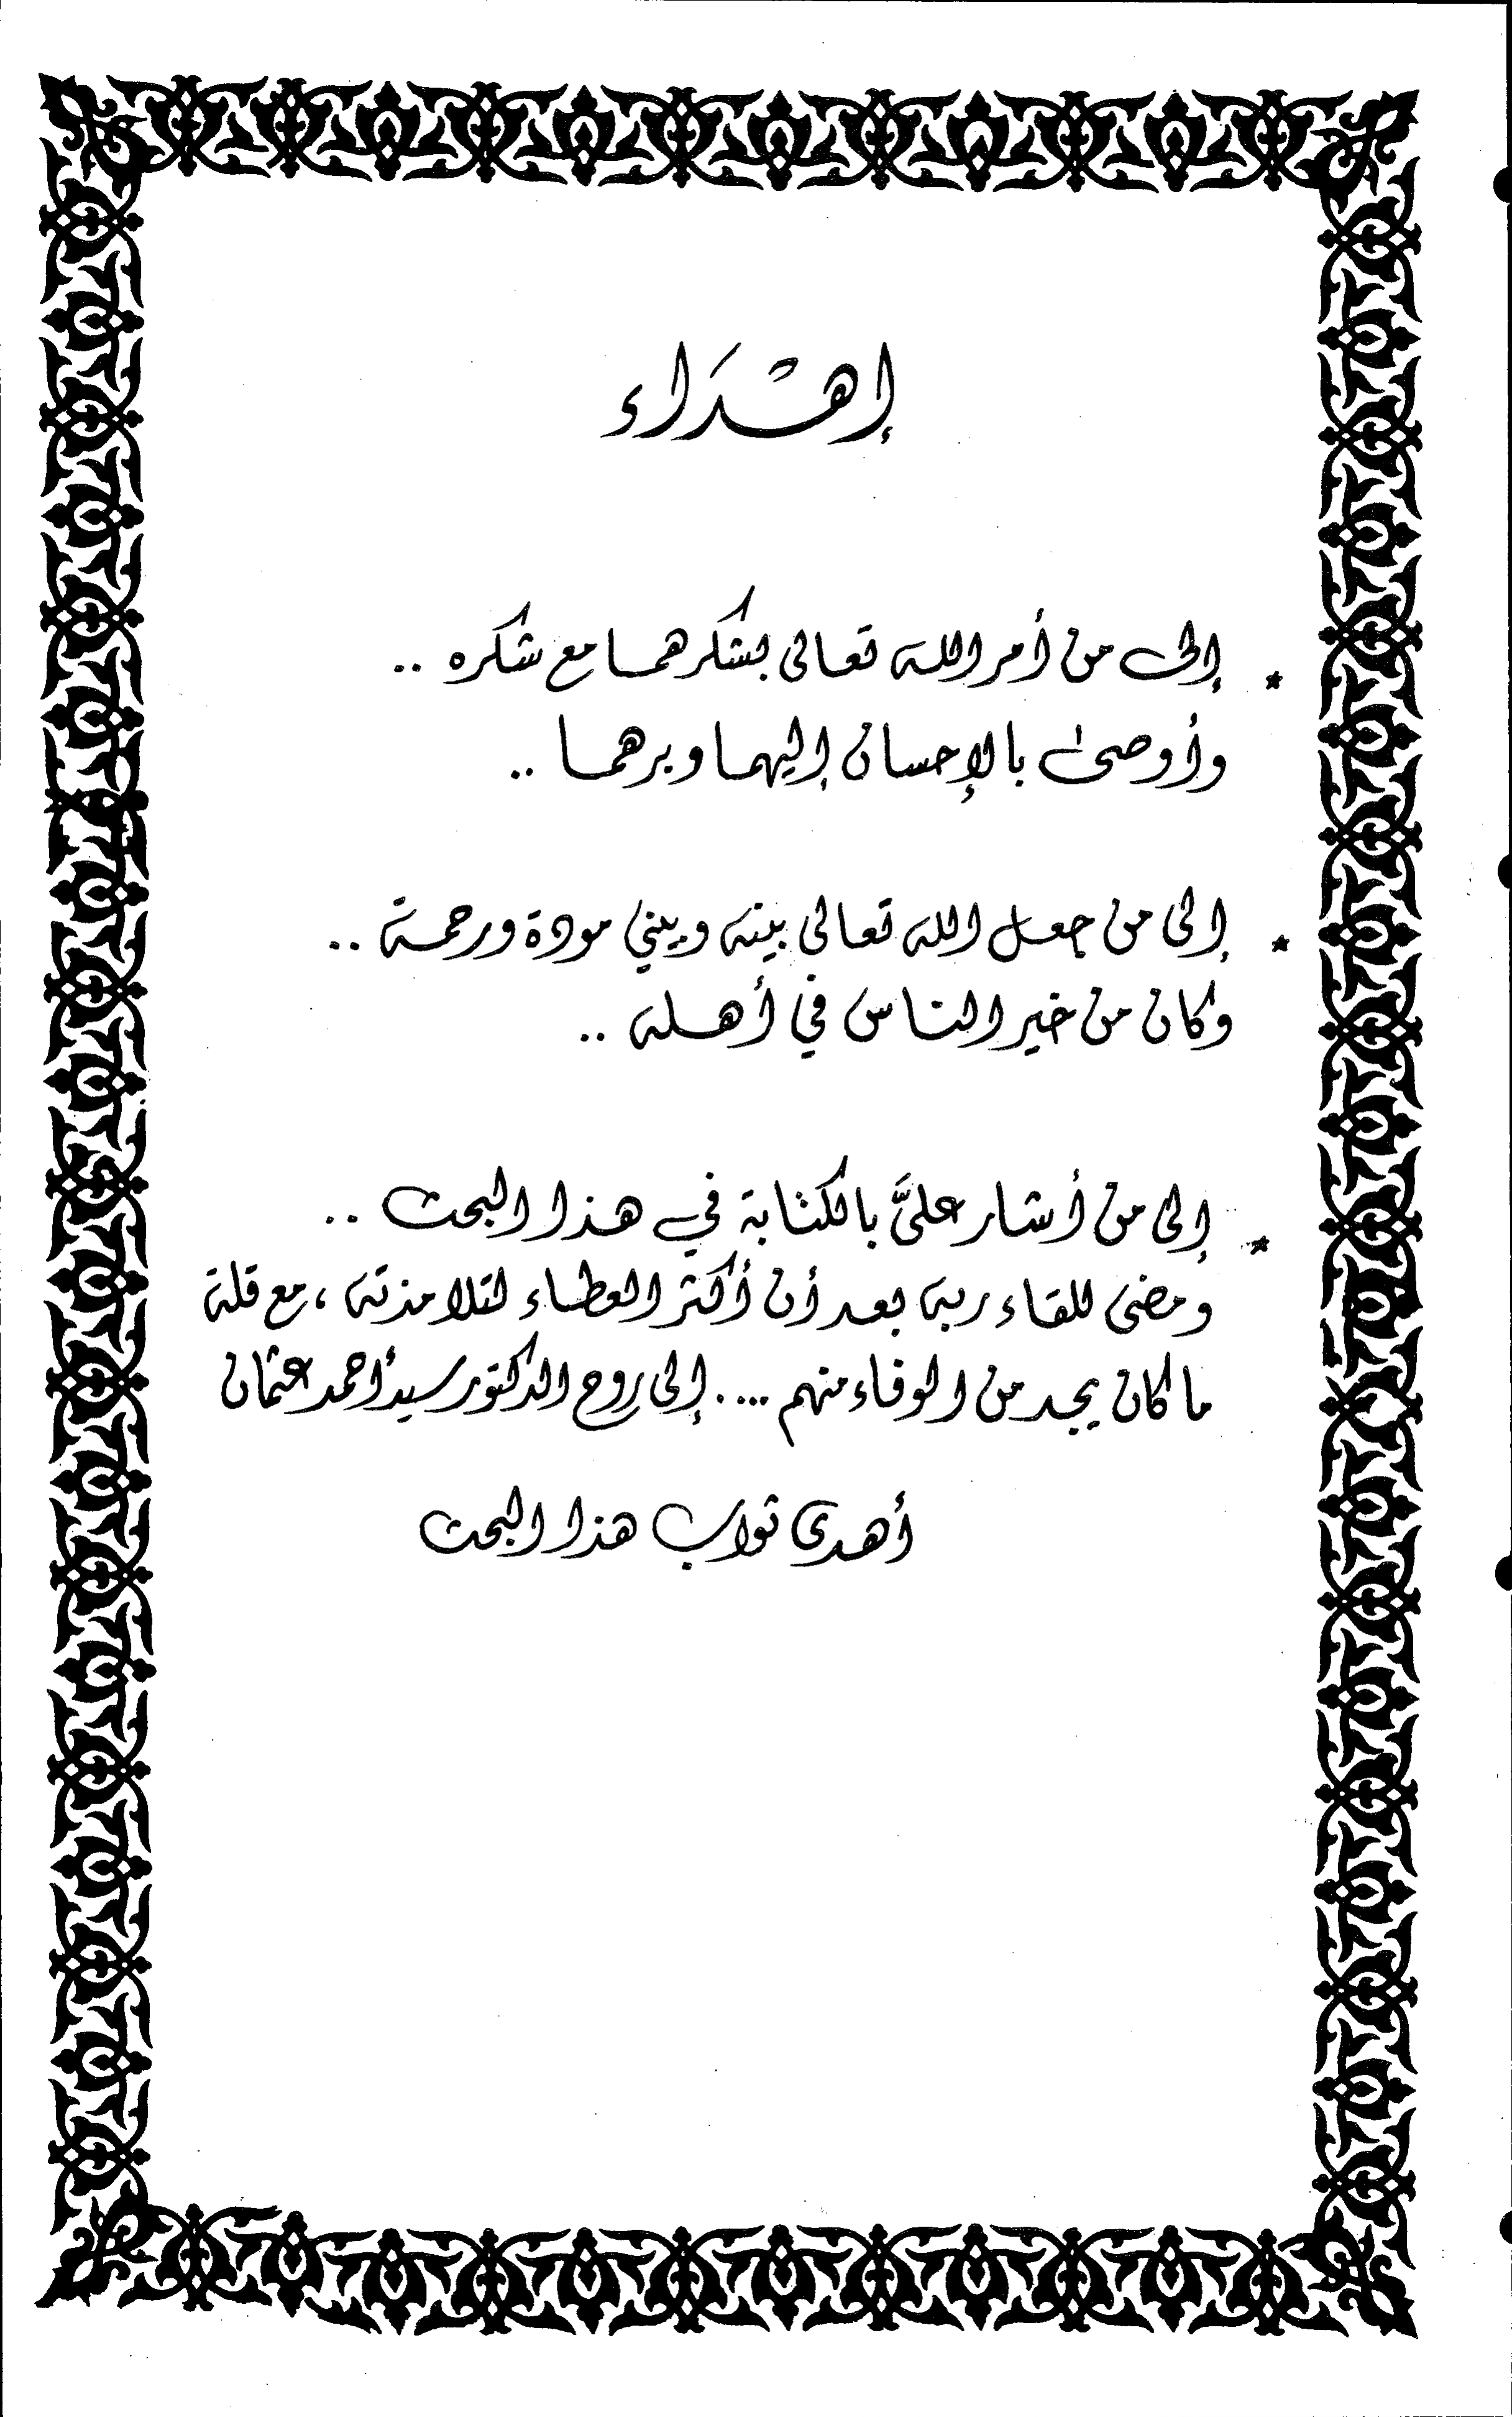 إهْدَاء
* إلى من أمر الله تعالى بشكرهما مع شكره ..
وأوصى بالإحسان إليهما وبرهما ..
* إلى من جعل الله تعالى بينه وبيني مودة ورحمة ..
وكان من خير الناس في أهله ..
* إلى من أشار عليَّ بالكتابة في هذا البحث ..
ومضى للقاء ربه بعد أن أكثر العطاء لتلامذته ، مع قلة
ما كان يجد من الوفاء منهم .... إلى روح الدكتور سيد أحمد عثمان
أهدى ثواب هذا البحث